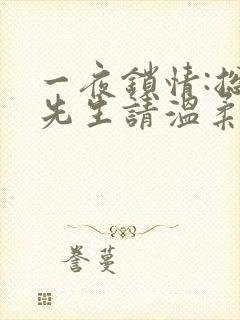 一夜鎖情:總
先生請溫柔
誉蔓